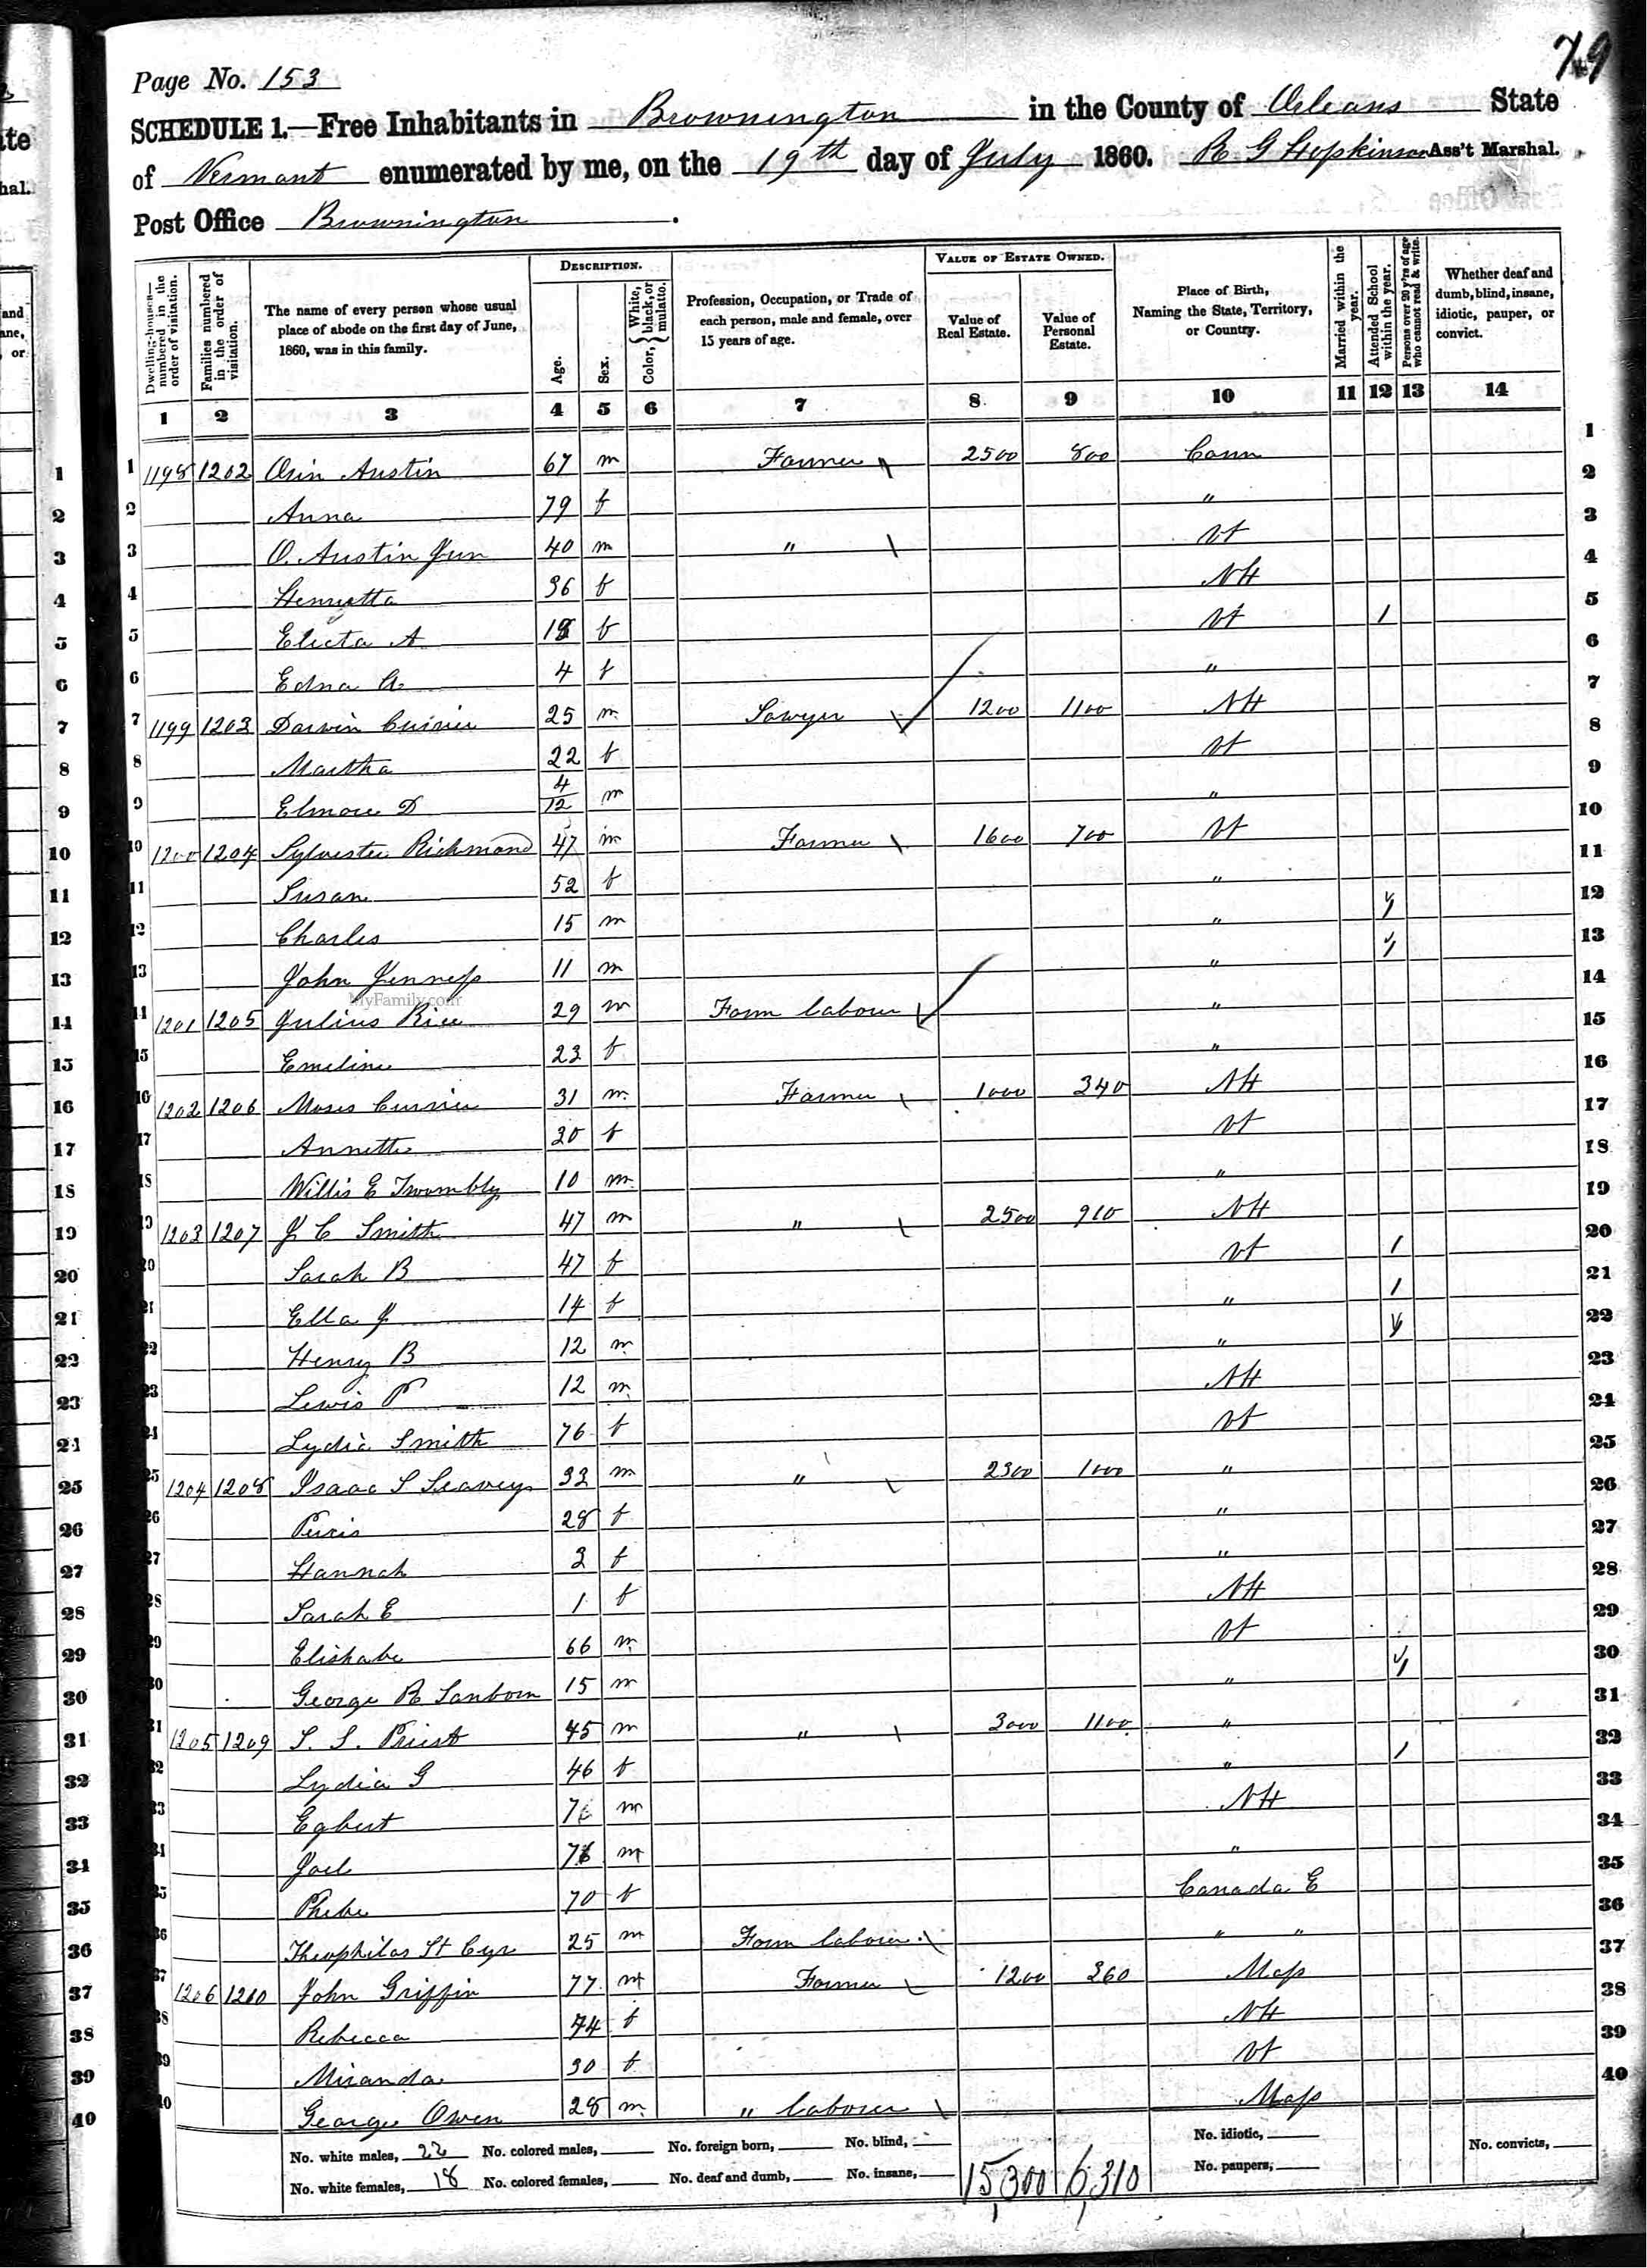 79
Page No. 153
SCHEDULE 1.—Free Inhabitants in Brownington in the County of Orleans State
of Vermont enumerated by me, on the 19th day of July 1860. R G Hopkinson Ass't Marshal.
Post Office Brownington.
Dwelling-houses—numbered in the order of visitation. Families numbered in the order of visitation. The name of every person whose usual place of abode on the first day of June, 1860, was in this family. DESCRIPTION. Age. Sex. Color, {White, black, or mulatto. Profession, Occupation, or Trade of each person, male and female, over 15 years of age. VALUE OF ESTATE OWNED. Value of Real Estate. Value of Personal Estate. Place of Birth, Naming the State, Territory, or Country. Married within the year. Attended School within the year. Persons over 20 y'rs of age who cannot read & write. Whether deaf and dumb, blind, insane, idiotic, pauper, or convict.
1 2 3 4 5 6 7 8 9 10 11 12 13 14
1 1198 1202 Orin Austin 67 m Farmer 2500 800 Conn 1
2 Anna 79 f " 2
3 O. Austin Jun 40 m " Vt 3
4 Henrietta 36 f NH 4
5 Electa A f Vt / 5
6 Edna A. 4 f " 6
7 1199 1203 Darwin Currier 25 m Sawyer 1200 1100 NH 7
8 Martha 22 f Vt 8
9 Elmore D 4/12 m " 9
10 1200 1204 Sylvester Richmond 47 m Farmer 1600 700 Vt 10
11 Susan 52 f " 11
12 Charles 15 m " / 12
13 John Jenness 11 m " / 13
14 1201 1205 Julius Rice 29 m Farm labourer " 14
15 Emeline 23 f " 15
16 1202 1206 Moses Currier 31 m Farmer 1000 340 NH 16
17 Annette 30 f Vt 17
18 Willis E Twombly 10 m " 18
19 1203 1207 J C Smith 47 m " 2500 910 NH 19
20 Sarah B 47 f Vt / 20
21 Ella J 14 f " / 21
22 Henry B 12 m " / 22
23 Lewis P 12 m NH 23
24 Lydia Smith 76 f Vt 24
25 1204 1208 Isaac S Seavey 33 m " 2300 1000 " 25
26 28 f " 26
27 Hannah 3 f " 27
28 Sarah E 1 f NH 28
29 66 m Vt 29
30 George R Sanborn 15 m " / 30
31 1205 1209 S. S. Priest 45 m " 3000 1100 " 31
32 Lydia G 46 f " / 32
33 Egbert m NH 33
34 Joel m " 34
35 Phebe 70 f Canada E 35
36 Theophilas St Cyr 25 m Farm labourer " " 36
37 1206 1210 John Griffin 77 m Farmer 1200 360 Mass 37
38 Rebecca 74 f NH 38
39 Miranda 30 f Vt 39
40 George Owen 28 m " labourer Mass 40
No. white males, 22 No. colored males, No. foreign born, No. blind, No. idiotic,
No. white females, 18 No. colored females, No. deaf and dumb, No. insane, 15,300 6,310 No. paupers, No. convicts,
MyFamily.com